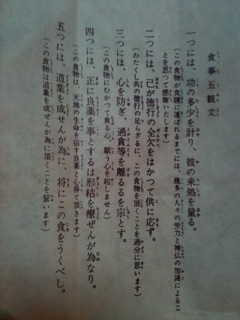 食事五観文
一つには、功の多少を計り、彼の来処を量る。
（この食物が食膳に運ばれるまでには、幾多の人々の労力と神仏の加護によることを思って感謝いたします）
二つには、己が徳行の全欠をはかつて供に応ず。
（わたくし共の徳行の足らざるに、この食物を頂くことを過分に思います）
三つには、心を防ぎ、過貪等を離るるを宗とす。
（この食物にむかつて貪る心、厭う心を起しません）
四つには、正に良薬を事とするは形枯を療ぜんが為なり。
（この食物は、天地の生命を宿す良薬と心得て頂きます）
五つには、道業を成ぜんが為に、将にこの食をうくべし。
（この食物は道業を成ぜんが為に頂くことを誓います）